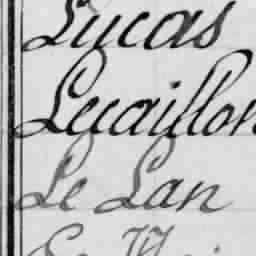 Lucas
Lecaillon
Le Lan